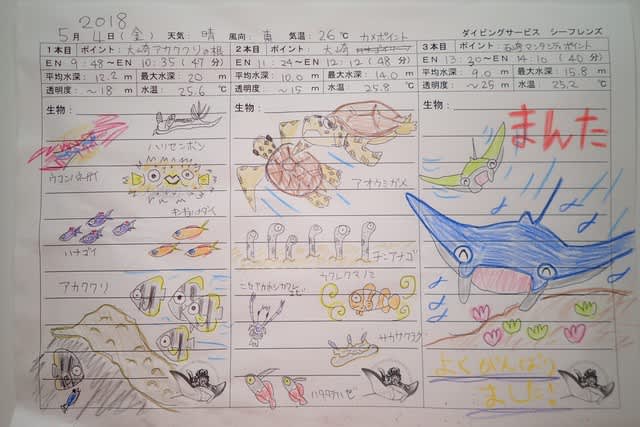 2018
5月4日(金) 天気: 晴 風向: 東 気温: 26℃ カメポイント ダイビングサービス シーフレンズ
1本目 ポイント: 大崎アカククリの根
EN 9:48〜EN 10:35 (47分)
平均水深: 12.2m 最大水深: 20m
透明度: 〜18m 水温: 25.6℃
生物:
ハリセンボン
ウコンハネガイ
キンギョハナダイ
ハナゴイ
アカククリ
2本目 ポイント: 大崎
EN 11:24〜EN 12:12 (48分)
平均水深: 10.0m 最大水深: 14.0m
透明度: 〜15m 水温: 25.8℃
生物:
アオウミガメ
チンアナゴ
カクレクマノミ
ハタタテハゼ
3本目 ポイント: 石崎マンタシティポイント
EN 13:30〜EN 14:10 (40分)
平均水深: 9.0m 最大水深: 15.8m
透明度: 〜25m 水温: 25.2℃
生物:
まんた
よくがんばり
ました!